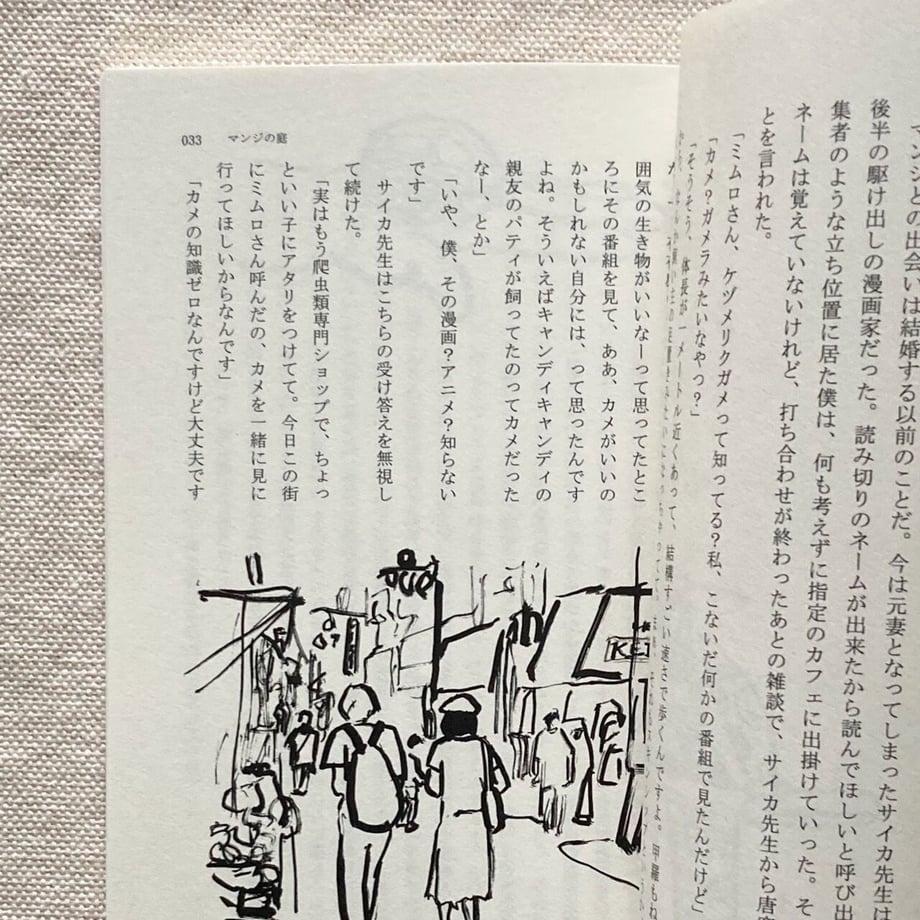 ンジとの出会いは結婚する以前のことだ。今は元妻となってしまったサイカ先生は
後半の駆け出しの漫画家だった。読み切りのネームが出来たから読んでほしいと呼び出
集者のような立ち位置に居た僕は、何も考えずに指定のカフェに出掛けていった。そ
ネームは覚えていないけれど、打ち合わせが終わったあとの雑談で、サイカ先生から唐
とを言われた。
「ミムロさん、ケヅメリクガメって知ってる？私、こないだ何かの番組で見たんだけど」
「カメ？ガメラみたいなやつ？」
「そうそう、体長が一メートル近くあって、結構すごい速さで歩くんですよ。甲羅もね
033 マンジの庭
囲気の生き物がいいなーって思ってたとこ
ろにその番組を見て、ああ、カメがいいの
かもしれない自分には、って思ったんです
よね。そういえばキャンディキャンディの
親友のパティが飼ってたのってカメだった
なー、とか」
「いや、僕、その漫画？アニメ？知らない
です」
サイカ先生はこちらの受け答えを無視し
て続けた。
「実はもう爬虫類専門ショップで、ちょっ
といい子にアタリをつけてて。今日この街
にミムロさん呼んだの、カメを一緒に見に
行ってほしいからなんです」
「カメの知識ゼロなんですけど大丈夫です